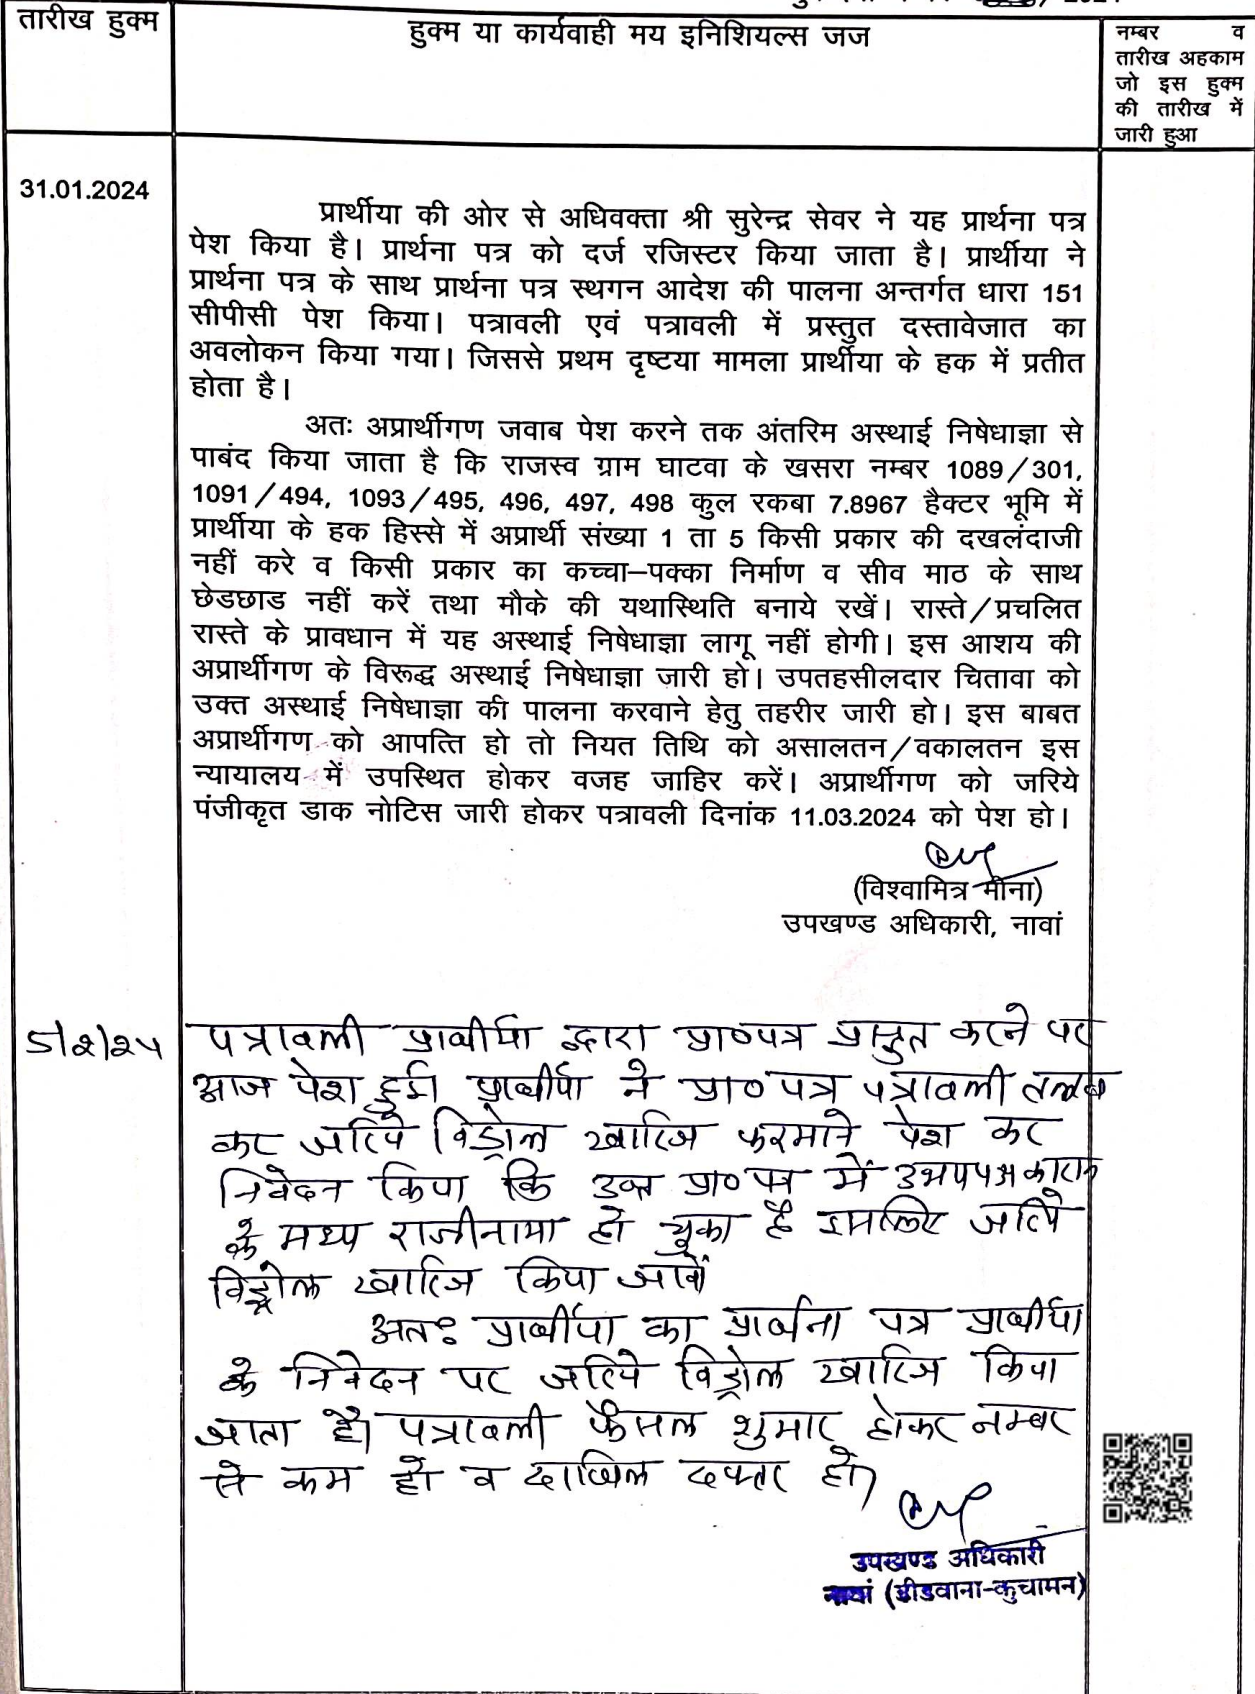 तारीख हुक्म
हुक्म या कार्यवाही मय इनिशियल्स जज
नम्बर व
तारीख अहकाम
जो इस हुक्म
की तारीख में
जारी हुआ
31.01.2024
प्रार्थीया की ओर से अधिवक्ता श्री सुरेन्द्र सेवर ने यह प्रार्थना पत्र
पेश किया है। प्रार्थना पत्र को दर्ज रजिस्टर किया जाता है। प्रार्थीया ने
प्रार्थना पत्र के साथ प्रार्थना पत्र स्थगन आदेश की पालना अन्तर्गत धारा 151
सीपीसी पेश किया। पत्रावली एवं पत्रावली में प्रस्तुत दस्तावेजात का
अवलोकन किया गया। जिससे प्रथम दृष्टया मामला प्रार्थीया के हक में प्रतीत
होता है।
अतः अप्रार्थीगण जवाब पेश करने तक अंतरिम अस्थाई निषेधाज्ञा से
पाबंद किया जाता है कि राजस्व ग्राम घाटवा के खसरा नम्बर 1089/301,
1091/494, 1093/495, 496, 497, 498 कुल रकबा 7.8967 हैक्टर भूमि में
प्रार्थीया के हक हिस्से में अप्रार्थी संख्या 1 ता 5 किसी प्रकार की दखलंदाजी
नहीं करे व किसी प्रकार का कच्चा–पक्का निर्माण व सीव माठ के साथ
छेडछाड नहीं करें तथा मौके की यथास्थिति बनाये रखें। रास्ते/प्रचलित
रास्ते के प्रावधान में यह अस्थाई निषेधाज्ञा लागू नहीं होगी। इस आशय की
अप्रार्थीगण के विरूद्ध अस्थाई निषेधाज्ञा जारी हो। उपतहसीलदार चितावा को
उक्त अस्थाई निषेधाज्ञा की पालना करवाने हेतु तहरीर जारी हो। इस बाबत
अप्रार्थीगण को आपत्ति हो तो नियत तिथि को असालतन/वकालतन इस
न्यायालय में उपस्थित होकर वजह जाहिर करें। अप्रार्थीगण को जरिये
पंजीकृत डाक नोटिस जारी होकर पत्रावली दिनांक 11.03.2024 को पेश हो।
(विश्वामित्र मीना)
उपखण्ड अधिकारी, नावां
5/2/24 पत्रावली प्रार्थीया द्वारा प्रा०पत्र प्रस्तुत करने पर
आज पेश हुई। प्रार्थीया ने प्रा० पत्र पत्रावली तलब
कर जरिये विड्रोल खारिज फरमाने पेश कर
निवेदन किया कि उक्त प्रा० पत्र में उभयपक्षकारान
के मध्य राजीनामा हो चुका है इसलिए जरिये
विड्रोल खारिज किया जावें
अतः प्रार्थीया का प्रार्थना पत्र प्रार्थीया
के निवेदन पर जरिये विड्रोल खारिज किया
जाता है। पत्रावली फैसल शुमार होकर नम्बर
से कम हो व दाखिल दफ्तर हो।
उपखण्ड अधिकारी
नावां (डीडवाना-कुचामन)